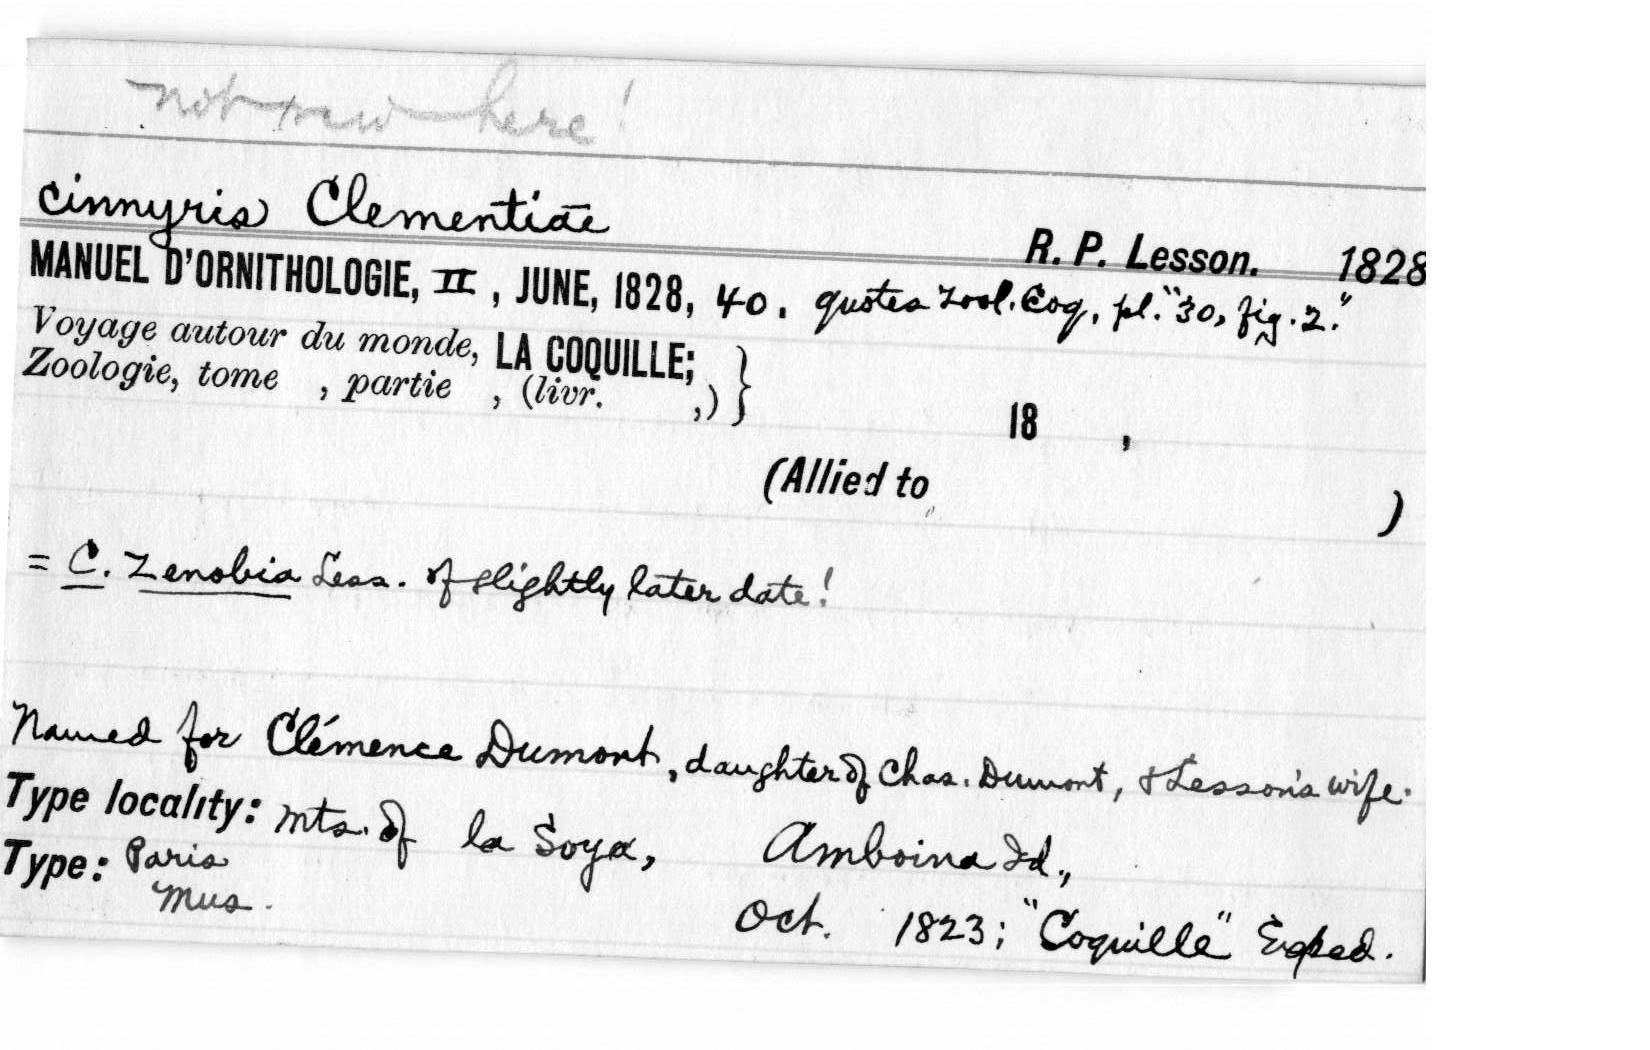 not new here!
Cinnyris Clementiae
R. P. Lesson. 1828
MANUEL D'ORNITHOLOGIE, II, JUNE, 1828, 40. quotes Zool. Coq., pl. "30, fig. 2."
Voyage autour du monde, LA COQUILLE;
Zoologie, tome , partie , (livr. ,) }
18 ,
(Allied to )
= C. Zenobia Less. of slightly later date!
Named for Clémence Dumont, daughter of Chas. Dumont, & Lesson's wife.
Type locality: Mts. of la Soya, Amboina Id.,
Type: Paris
Mus.
Oct. 1823; "Coquille" Exped.